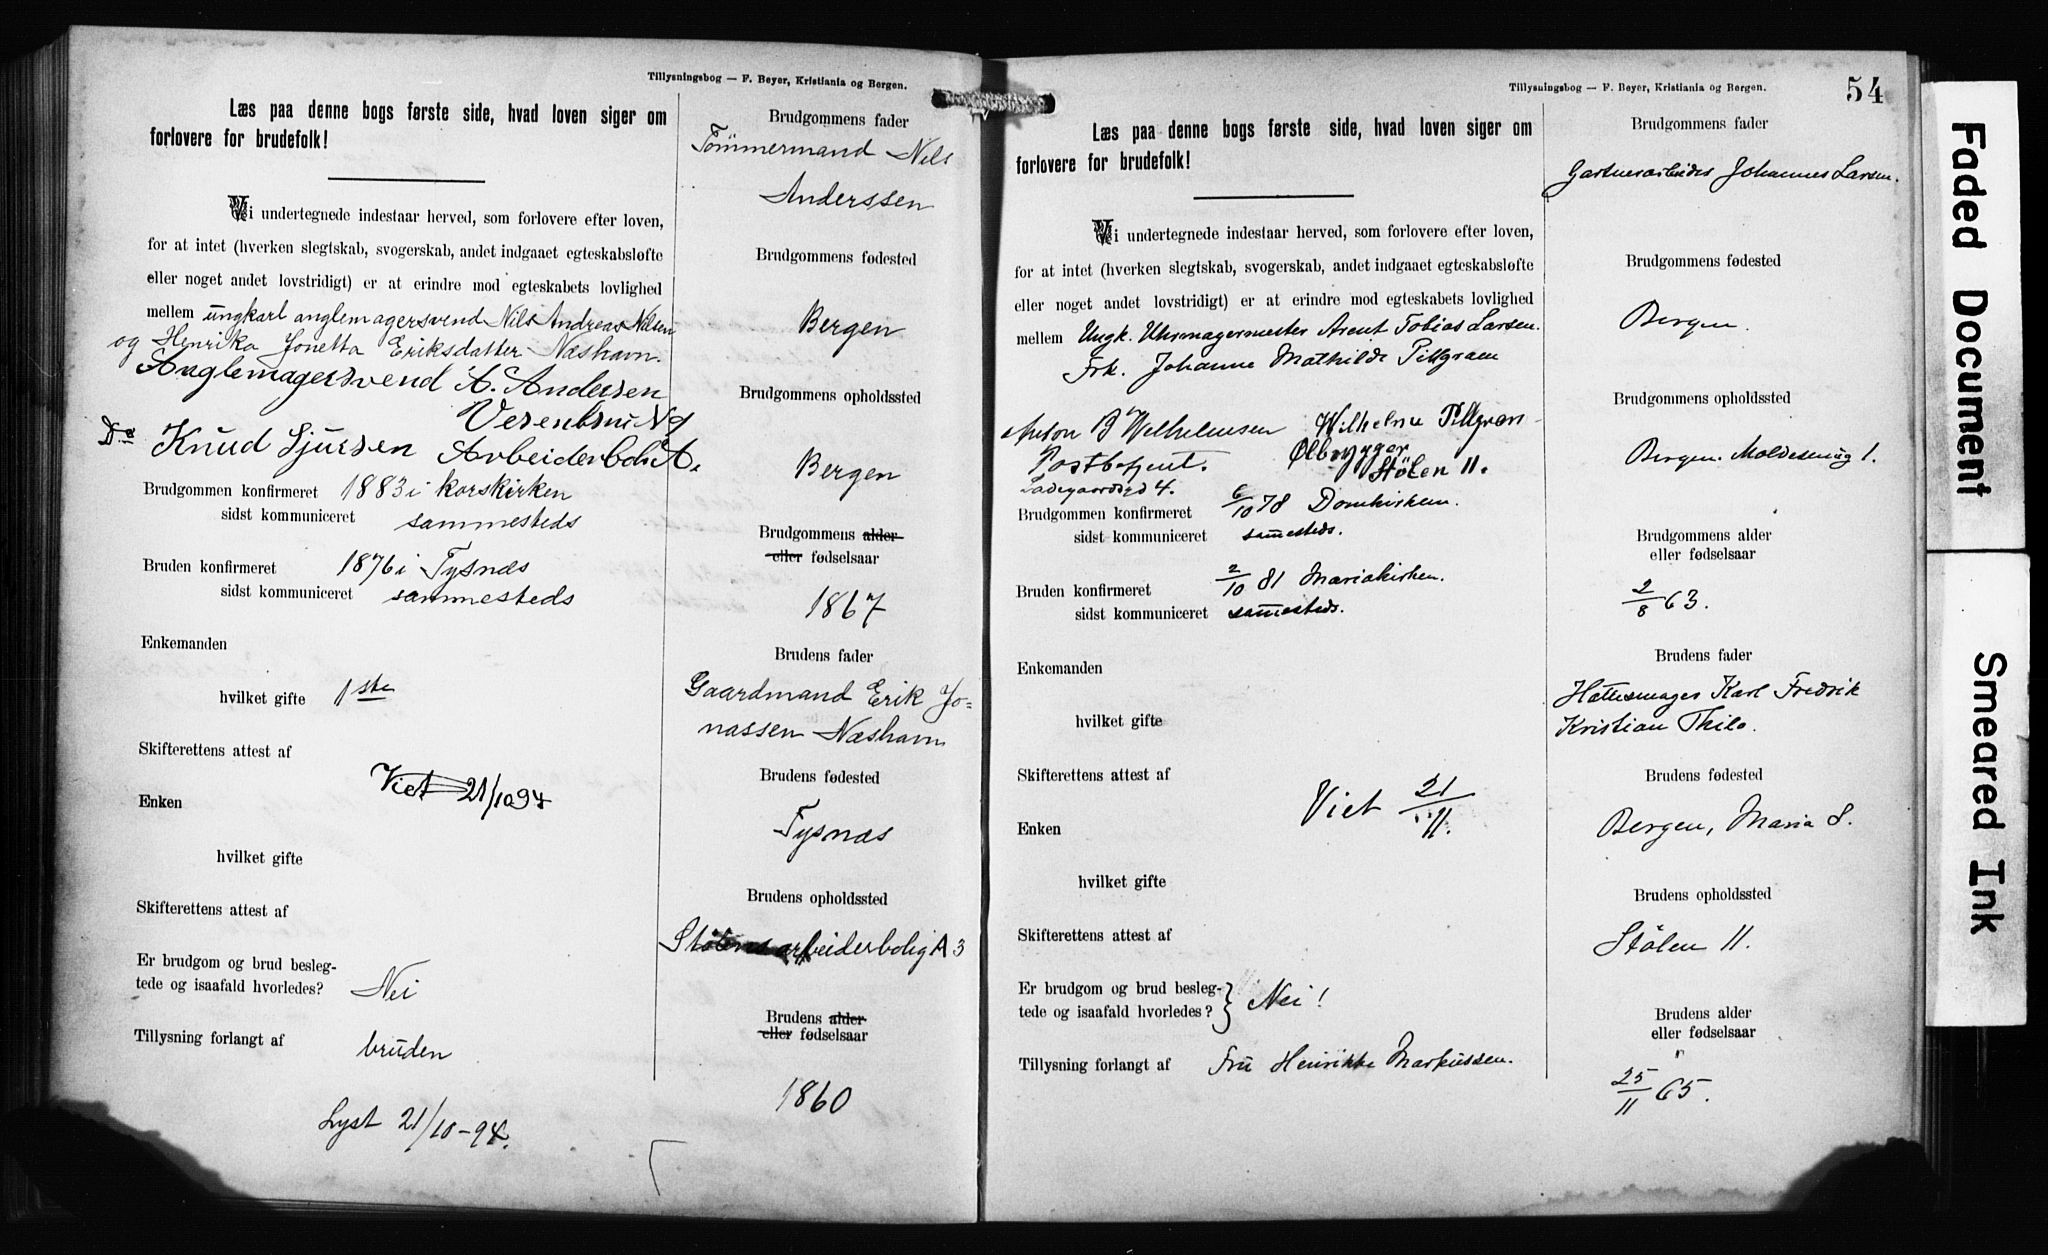 Tillysningsbog — F. Beyer, Kristiania og Bergen.
Læs paa denne bogs første side, hvad loven siger om
forlovere for brudefolk!
Vi undertegnede indestaar herved, som forlovere efter loven,
for at intet (hverken slegtskab, svogerskab, andet indgaaet egteskabsløfte
eller noget andet lovstridigt) er at erindre mod egteskabets lovlighed
mellem ungkarl anglemagersvend Nils Andreas Nilsen
og Henrika Jonetta Eriksdatter Næshavn.
Anglemagersvend A. Andersen
Ds Knud Sjursen Arbeiderbol A.
Brudgommen konfirmeret 1883 i Korskirken
sidst kommuniceret sammesteds
Bruden konfirmeret 1876 i Tysnæs
sidst kommuniceret sammesteds
Enkemanden
hvilket gifte 1ste
Skifterettens attest af
Viet 21/10 94
Enken
hvilket gifte
Skifterettens attest af
Er brudgom og brud besleg-
tede og isaafald hvorledes? Nei
Tillysning forlangt af bruden
Lyst 21/10-94.
Brudgommens fader
Tömmermand Nils
Anderssen
Brudgommens fødested
Bergen
Brudgommens opholdssted
Bergen
Brudgommens alder
eller fødselsaar
1867
Brudens fader
Gaardmand Erik Jo=
nassen Næshavn
Brudens fødested
Tysnæs
Brudens opholdssted
Stölens arbeiderbolig A 3
Brudens alder
eller fødselsaar
1860
Tillysningsbog — F. Beyer, Kristiania og Bergen.
54
Læs paa denne bogs første side, hvad loven siger om
forlovere for brudefolk!
Vi undertegnede indestaar herved, som forlovere efter loven,
for at intet (hverken slegtskab, svogerskab, andet indgaaet egteskabsløfte
eller noget andet lovstridigt) er at erindre mod egteskabets lovlighed
mellem Ungk. Uhrmagermester Arent Tobias Larsen.
Frk. Johanne Mathilde Pillgram
Anton B Wilhelmsen Wilhelm Pillgram
Postbetjent. Ølbrygger
Ladegaardsgd 4. Stölen 11.
Brudgommen konfirmeret 6/10 78 Domkirken.
sidst kommuniceret sammesteds.
Bruden konfirmeret 2/10 81 Mariakirken.
sidst kommuniceret sammesteds.
Enkemanden
hvilket gifte
Skifterettens attest af
Viet 21/11.
Enken
hvilket gifte
Skifterettens attest af
Er brudgom og brud besleg-
tede og isaafald hvorledes? } Nei!
Tillysning forlangt af Fru Henrikke Markussen.
Brudgommens fader
Gartnerarbeider Johannes Larsen.
Brudgommens fødested
Bergen.
Brudgommens opholdssted
Bergen. Moldesmug 1.
Brudgommens alder
eller fødselsaar
2/8 63.
Brudens fader
Hattemager Karl Fredrik
Kristian Thilo.
Brudens fødested
Bergen, Maria S.
Brudens opholdssted
Stölen 11.
Brudens alder
eller fødselsaar
25/11 65.
Faded Document
Smeared Ink